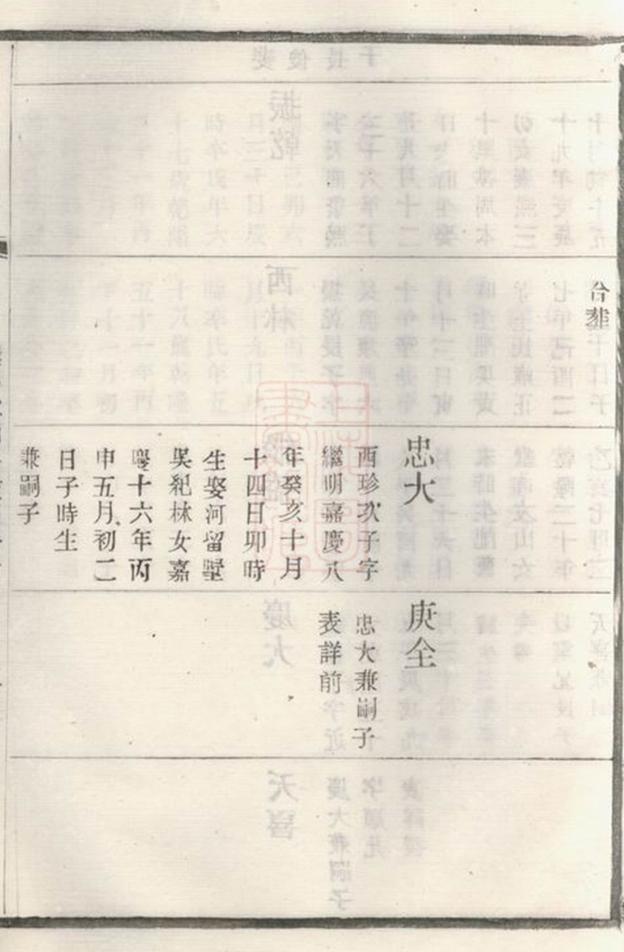 合葬
忠大
西珍次子字
繼明嘉慶八
年癸亥十月
十四日卯時
生娶河留墅
吴紀林女嘉
慶十六年丙
申五月初二
日子時生
兼嗣子
庚全
忠大兼嗣子
表詳前